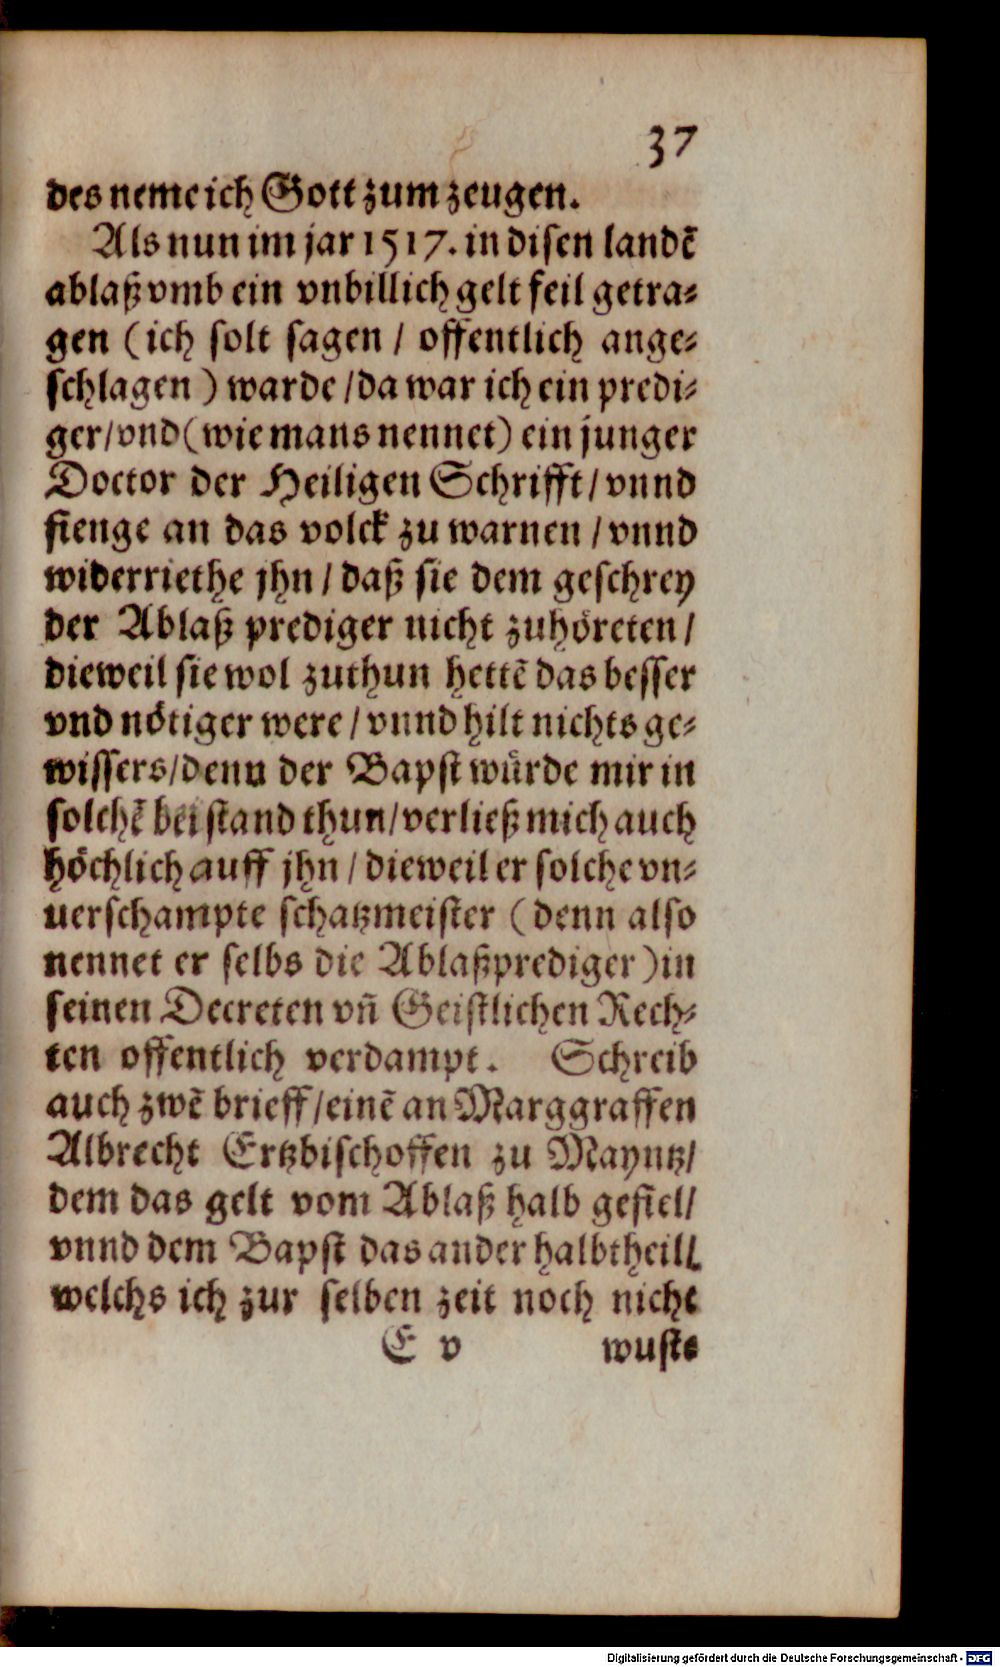 37
des neme ich Gott zum zeugen.
Als nun im jar 1517. in disen landē
ablaß vmb ein vnbillich gelt feil getra⸗
gen (ich solt sagen / offentlich ange⸗
schlagen) warde / da war ich ein predi⸗
ger / vnd (wie mans nennet) ein junger
Doctor der Heiligen Schrifft / vnnd
fienge an das volck zu warnen / vnnd
widerriethe jhn / daß sie dem geschrey
der Ablaß prediger nicht zuhöreten /
dieweil sie wol zuthun hettē das besser
vnd nötiger were / vnnd hilt nichts ge⸗
wissers / denn der Bapst würde mir in
solchē beistand thun / verließ mich auch
höchlich auff jhn / dieweil er solche vn⸗
uerschampte schatzmeister (denn also
nennet er selbs die Ablaßprediger) in
seinen Decreten vñ Geistlichen Rech⸗
ten offentlich verdampt. Schreib
auch zwē brieff / einē an Marggraffen
Albrecht Ertzbischoffen zu Mayntz /
dem das gelt vom Ablaß halb gefiel /
vnnd dem Bapst das ander halbtheil /
welchs ich zur selben zeit noch nicht
E v wuste
Digitalisierung gefördert durch die Deutsche Forschungsgemeinschaft - DFG